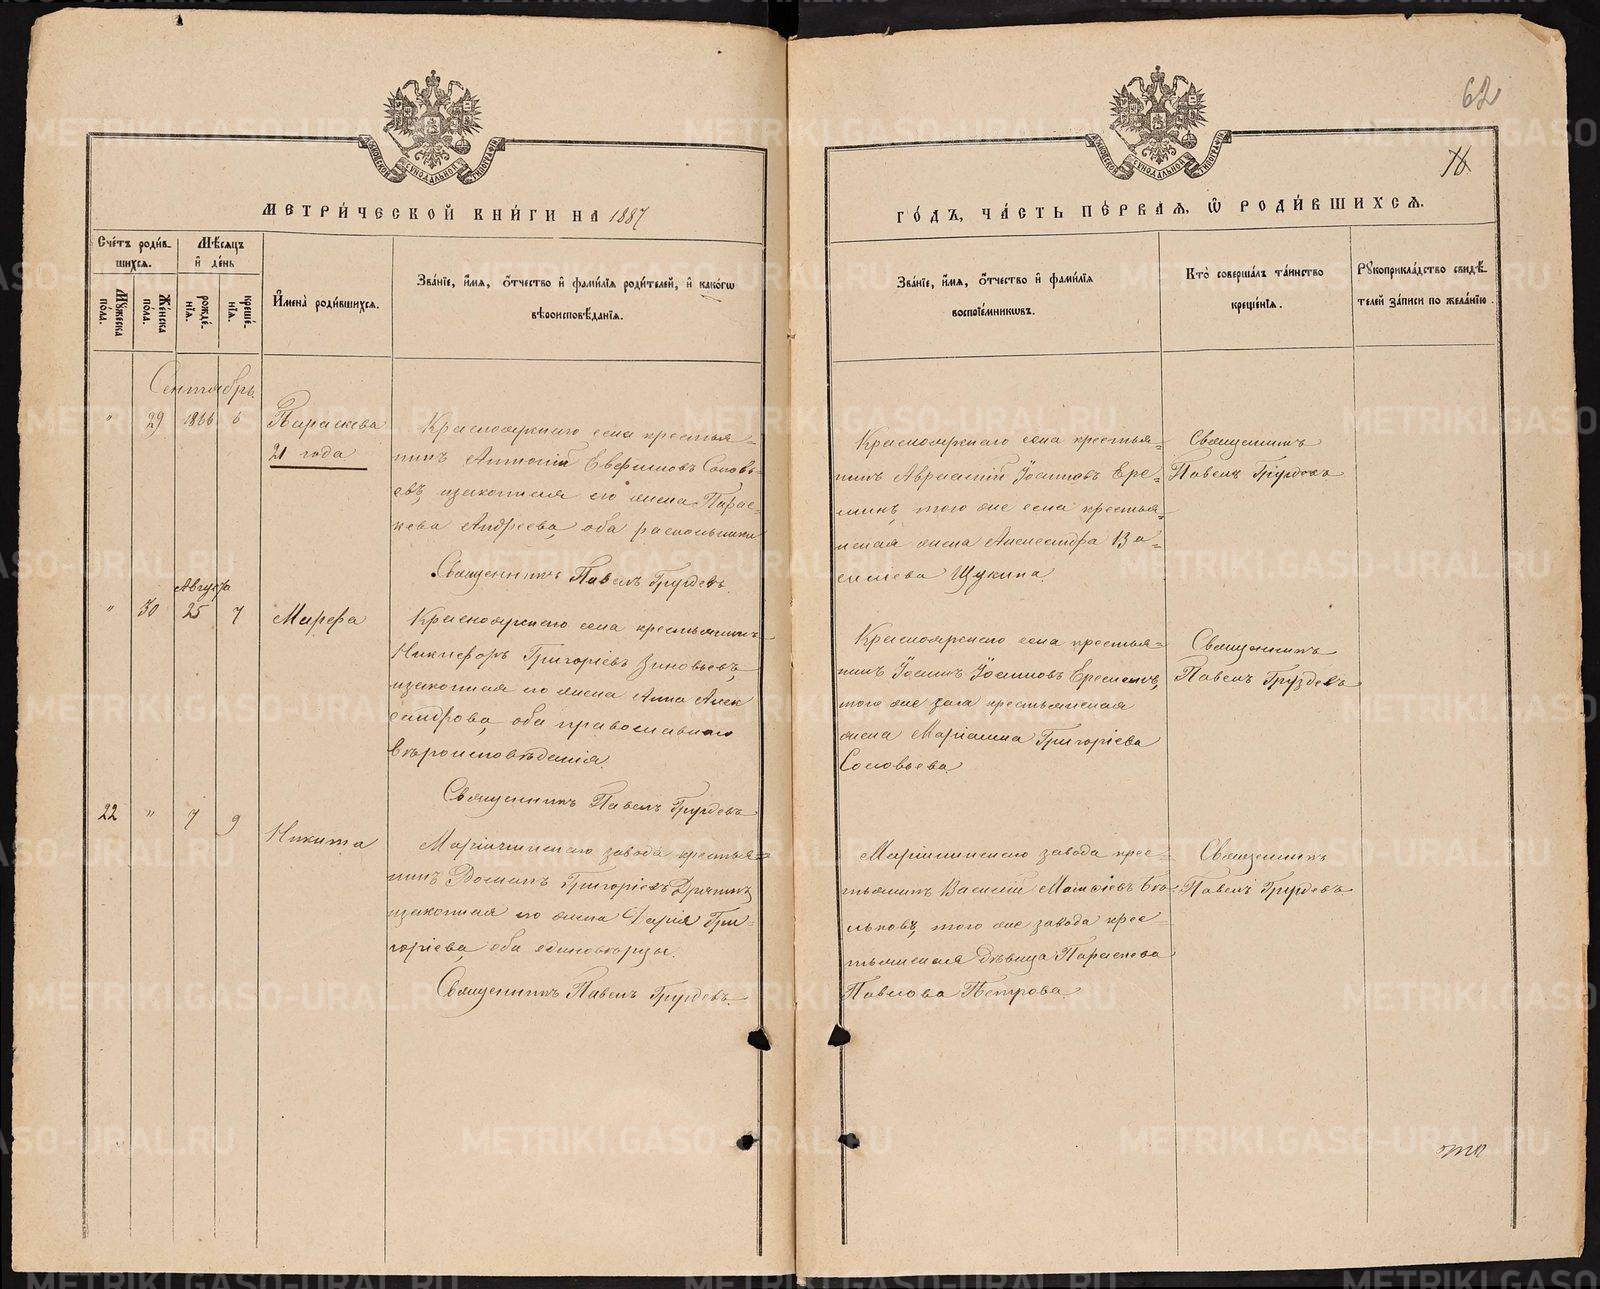 62
МЕТРИ́ЧЕСКОЙ КНИ́ГИ НА 1887
ГО́ДЪ, ЧА́СТЬ ПЕ́РВАЯ, Ѡ РОДИ́ВШИХСЯ.
Сче́тъ роди́в-
шихся.
Мѣ́сяцъ
и҆ де́нь
Мꙋжеска пола.
Женска пола.
рожде́нїя.
креще́нїя.
И҆мена̀ роди́вшихся.
Зва́нїе, и҆́мя, ѻ҆́тчество и҆ фами́лїя роди́телей, и҆ како́гѡ
вѣроисповѣ́данїя.
Зва́нїе, и҆́мя, ѻ҆́тчество и҆ фами́лїя
воспрїе́мникѡвъ.
Кто̀ соверша́лъ та́инство
креще́нїя.
Рꙋкоприкла́дство свидѣ́-
телей за́писи по жела́нїю.
Сентябрь
" 29 1866 6 Параскева
21 года
Красноярскаго села крестья-
нинъ Антоній Евфимовъ Соловь-
евъ, изаконная его жена Парас-
кева Андреева, оба раскольники
Священникъ Павелъ Груздевъ.
Красноярскаго села крестья-
нинъ Іоанновъ Ере-
минъ, того же села крестья-
нская жена Александра
Щукина.
Священникъ
Павелъ Груздевъ
Августа
" 30 25 7 Марфа
Красноярскаго села крестьянинъ
Никифоръ Григоріевъ Зиновьевъ,
изаконная его жена Анна Алек
сандрова, оба православнаго
вѣроисповѣданія.
Священникъ Павелъ Груздевъ
Красноярскаго села крестья-
нинъ Іоаннъ Іоанновъ
того же села крестьянская
жена Маріанна Григоріева
Соловьева.
Священникъ
Павелъ Груздевъ
22 " 7 9 Никита
Маріинскаго завода крестья-
нинъ Григоріевъ
изаконная его жена Дарія Гри-
горіева, оба единовѣрцы.
Священникъ Павелъ Груздевъ.
Маріинскаго завода крес-
тьянинъ Василій
того же завода крес-
тьянская дѣвица Параскева
Павлова Петрова.
Священникъ
Павелъ Груздевъ
METRIKI.GASO-URAL.RU